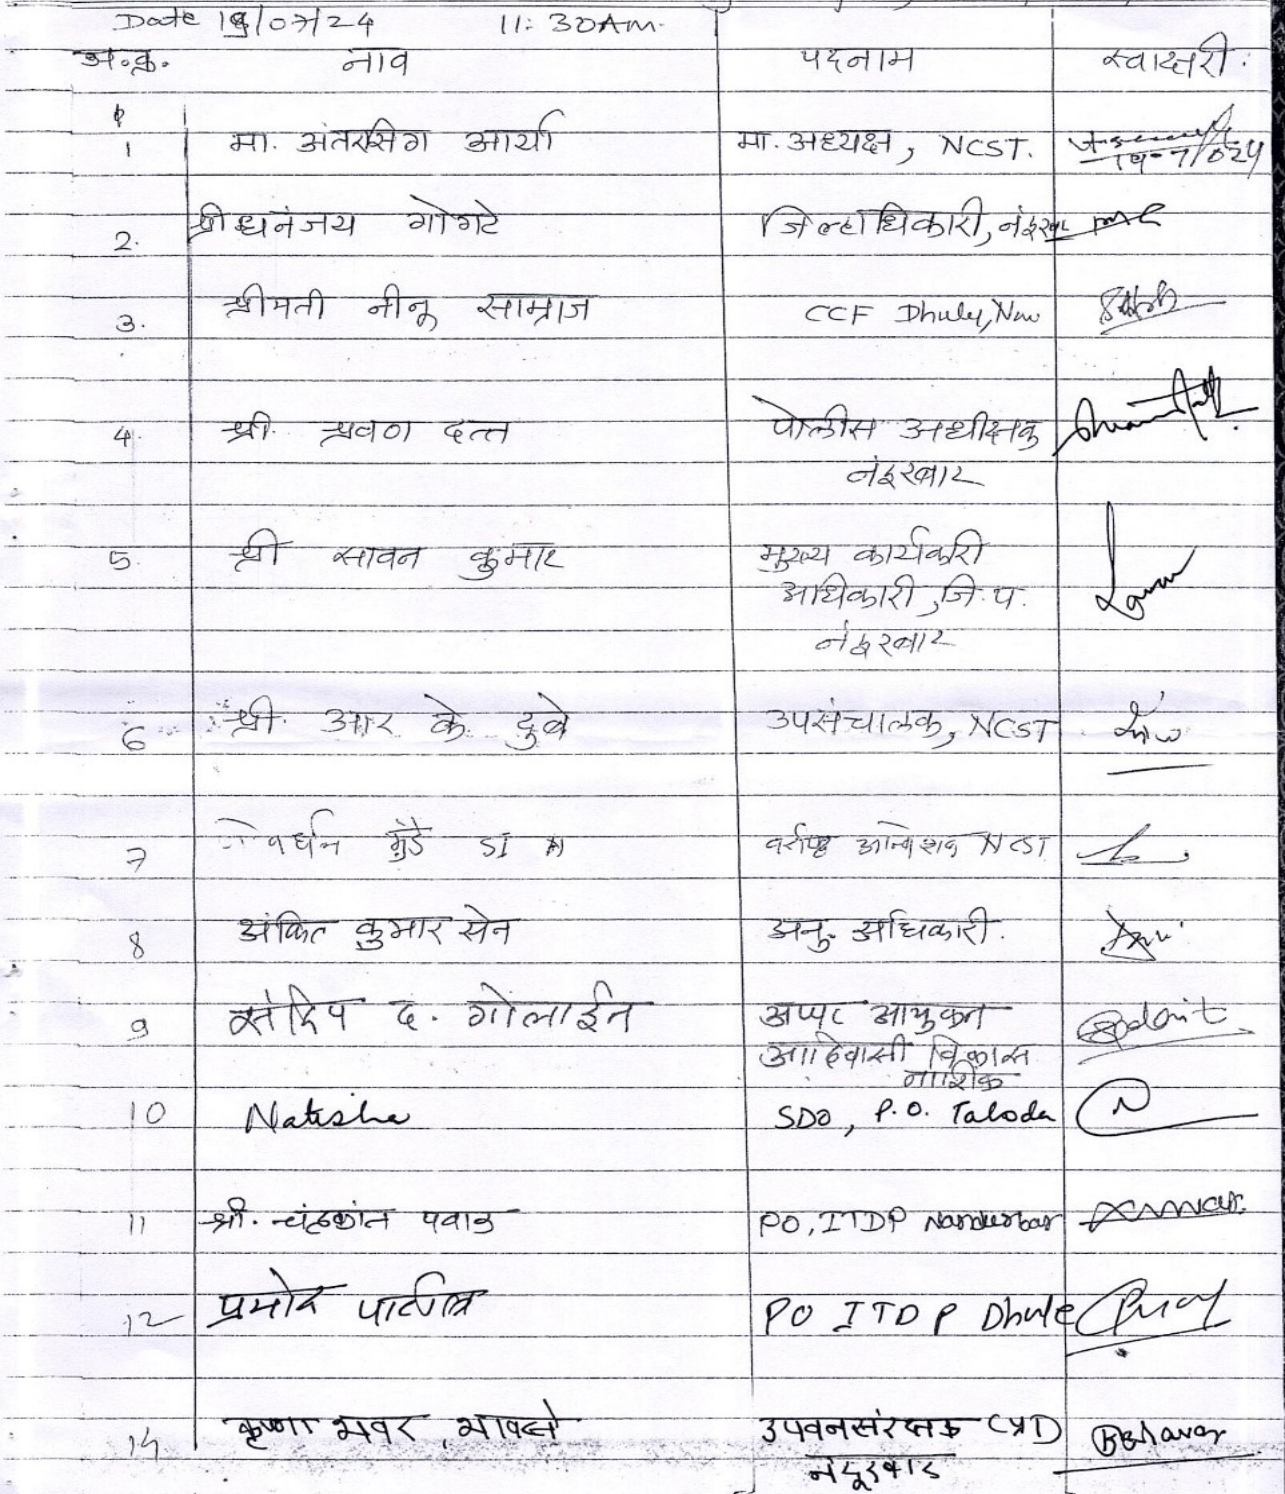 Date 19/07/24 11:30AM.
अ.क्र. नाव पदनाम स्वाक्षरी.
1 मा. अंतरसिंग आर्या मा. अध्यक्ष, NCST. 19-7/024
2. श्री धनंजय गोगटे जिल्हाधिकारी, नंदुरबार
3. श्रीमती नीनू सोमराज CCF Dhule,
4. श्री. श्रवण दत्त पोलीस अधीक्षक
नंदुरबार
5. श्री सावन कुमार मुख्य कार्यकारी
अधिकारी, जि.प.
नंदुरबार
6 श्री. आर के दुबे उपसंचालक, NCST
7 गोवर्धन मुंडे NCST
8 अंकित कुमार सेन अनु. अधिकारी.
9 संदिप द. गोलाईत अप्पर आयुक्त
आदिवासी विकास
नाशिक
10 Natisha SDO, P.O. Taloda
11 श्री. चंद्रकांत पवार PO, ITDP Nandurbar
12 प्रमोद पाटील PO ITDP Dhule
14 कृष्णा भवर उपवनसंरक्षक
नंदूरबार